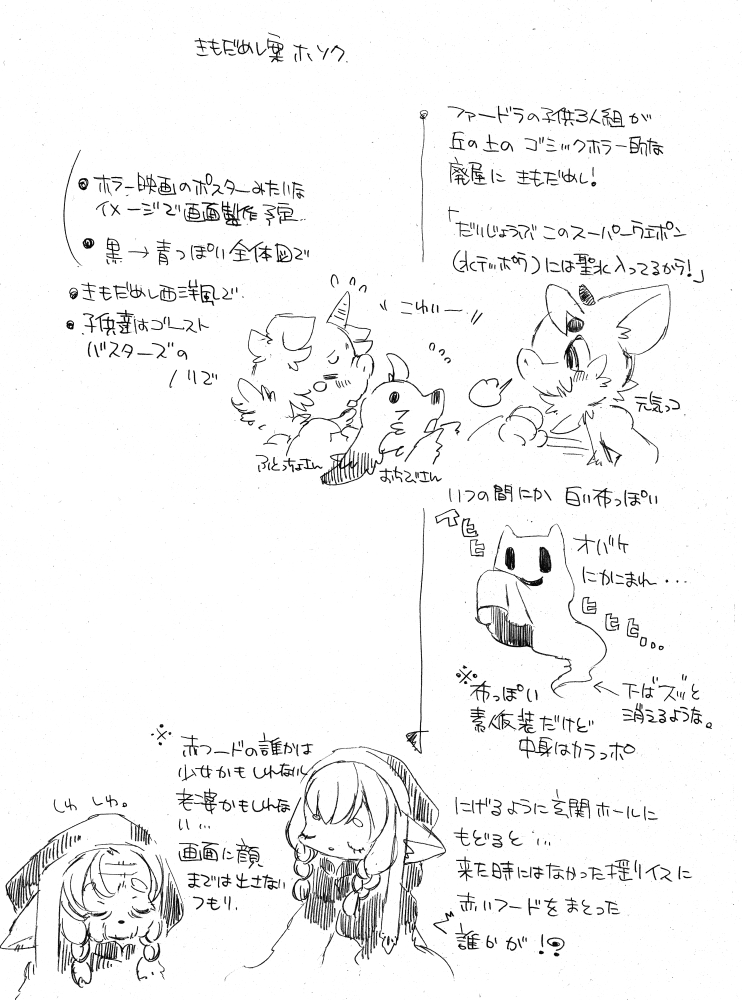 きもだめし案 ホソク
ファードラの子供3人組が
丘の上の ゴシックホラー的な
廃屋に きもだめし!
「だいじょうぶ このスーパーウェポン
(水テッポウ)には聖水入ってるから!」
●ホラー映画のポスターみたいな
イメージで画面製作予定..
●黒→青っぽい全体図で
●きもだめし西洋風で
●子供達はゴースト
バスターズの
ノリで
こわいー
元気っコ
ふとっちょさん
おちびさん
いつの間にか 白い布っぽい
オバケ
にかこまれ・・・
ヒヒヒ
ヒヒヒ...
※布っぽい
素人仮装だけど
中身はカラっポ
←下はズッと
消えるような。
にげるように玄関ホールに
もどると…
来た時にはなかった揺りイスに
赤いフードをまとった
誰かが!?
※赤フードの誰かは
少女かもしれないし
老婆かもしれな
い…
画面に顔
までは出さない
つもり.
しわ しわ。